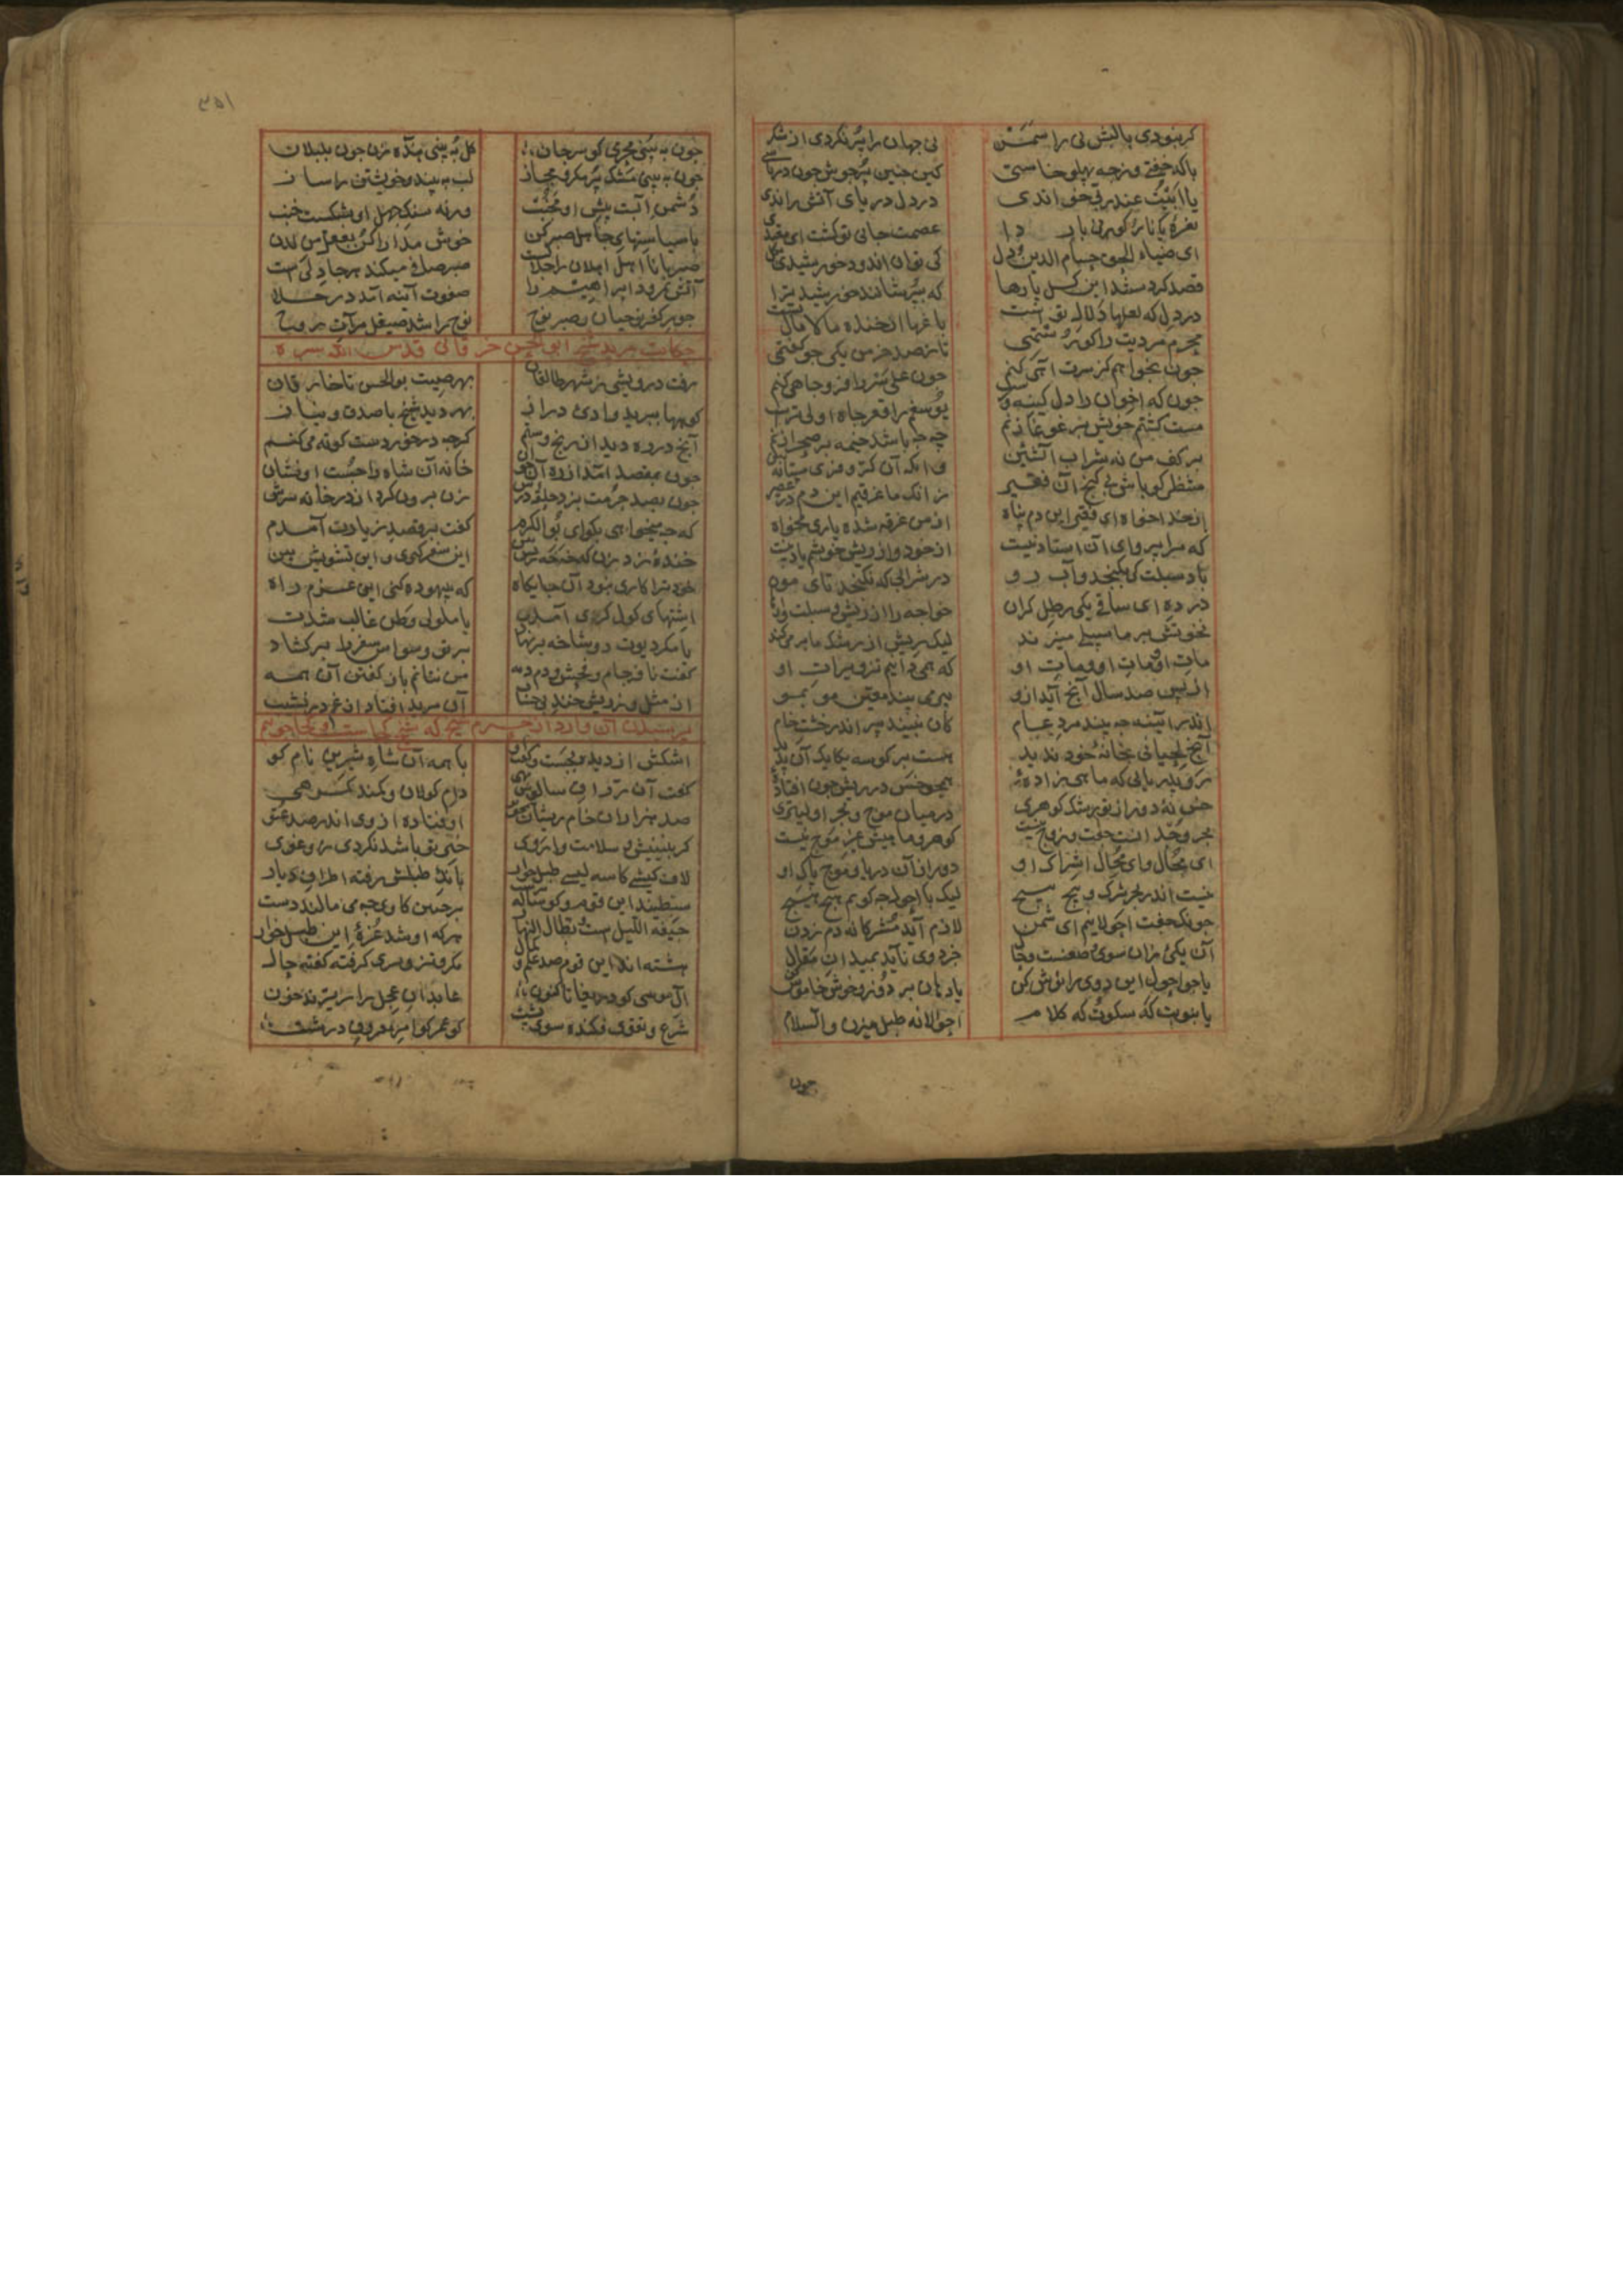 کر نبودی با لبش نی را سمر نی جهان را پر نکردی از شکر
با که خفتی وز چه پهلو خاستی کین چنین پر جوش چون دریاستی
یا ابیت عند ربی خواندی در دل دریای آتش راندی
نعره یا نار کونی باردا عصمت جانی تو کشت ای مقتدی
ای ضیاء الحق حسام الدین و دل کی توان اندود خورشیدی بکل
قصد کردستند این کل پارها که بپوشانند خورشید ترا
در دل که لعلها دلال تست باغها از خنده مالامال تست
محرم مردیت را کو رستمی تا ز صد خرمن یکی جو کفتمی
چون بخواهم کز سرت آهی کنم چون علی سر را فرو چاهی کنم
چونکه اخوان را دل کینه ورست یوسفم را قعر چاه اولیترست
مست کشتم خویش بر غوغا زنم چه چه باشد خیمه بر صحرا زنم
بر کف من نه شراب آتشین وانکه آن کر و فر مستانه بین
منتظر کو باش بی کنج آن فقیر زانک ما غرقیم این دم در عصیر
از خدا خواه ای فقیر این دم پناه از من غرقه شده یاری مخواه
که مرا پروای آن استاد نیست از خود و از ریش خویشم یاد نیست
باد سبلت کی بکنجد و آب رو در شرابی که نکنجد تای مو
در ده ای ساقی یکی رطل کران خواجه را از ریش و سبلت وارهان
نخوتش بر ما سبالی میزند لیک ریش از رشک ما بر می کند
مات او و مات او و مات او که همی دانیم تزویرات او
از پس صد سال آنچ آید ازو پیر می بیند معین مو بمو
اندر آیینه چه بیند مرد عام کان نبیند پیر اندر خشت خام
آنچ لحیانی بخانه خود ندید هست بر کوسه یکایک آن پدید
رو بدریایی که ماهی زاده همچو خس در ریش چون افتاده
خس نه دور از تو رشک کوهری در میان موج و بحر اولیتری
بحر وحدانست جفت و زوج نیست کوهر و ماهیش غیر موج نیست
ای محال و ای محال اشراک او دور از آن دریا و موج پاک او
نیست اندر بحر شرک و پیچ پیچ لیک با احول چه کویم هیچ هیچ
چونک جفت احولانیم ای شمن لازم آید مشرکانه دم زدن
آن یکی زان سوی وصفست و حال جز دوی ناید بمیدان مقال
یا چو احول این دوی را نوش کن یا دهان بر دوز و خوش خاموش کن
یا بنوبت که سکوت که کلام احولانه طبل میزن والسلام
چون
۳۵۱
چون به بینی محرمی کو سر جان کل به بینی نعره زن چون بلبلان
چون به بینی مشک پر مکر و مجاز لب به بند و خویشتن را ساز
دشمن آبست پیش او مجنب ورنه سنک جهل او بشکست خنب
با سیاستهای جاهل صبر کن خوش مدارا کن بعقل من لدن
صبر با نااهل اهلان را جلاست صبر صافی میکند هر جا دلیست
آتش نمرود ابراهیم را صفوت آینه آمد در جلا
جور کفر نوحیان و صبر نوح نوح را شد صیقل مرآت روح
حکایت مرید شیخ ابو الحسن خرقانی قدس الله سره
رفت درویشی ز شهر طالقان بهر صیت بوالحسن تا خارقان
کوهها ببرید و وادی دراز بهر دید شیخ با صدق و نیاز
آنچ در ره دید از رنج و ستم کرچه در خوردست کوته می کنم
چون بمقصد آمد از ره آن جوان خانه آن شاه را جست او نشان
چون بصد حرمت بزد حلقه درش زن برون کرد از در خانه سرش
که چه میخواهی بکو ای بوالکرم کفت بر قصد زیارت آمدم
خنده زد زن که خه خه ریش بین این سفر کیری و این تشویش بین
خود ترا کاری نبود آن جایکاه که بیهوده کنی این عزم راه
اشتهای کول کردی آمدت یا ملولی وطن غالب شدت
یا مکر دیوت دوشاخه بر نهاد بر تو وسواس سفر را بر کشاد
کفت نافرجام و فحش و دمدمه من نتانم باز کفتن آن همه
از مثل وز ریش خند بی حساب آن مرید افتاد از غم در نشیب
پرسیدن آن وارد از حرم شیخ که شیخ کجاست او کجا جویم
اشکش از دیده بجست و کفت او با همه آن شاه شیرین نام کو
کفت آن زراق سالوس تهی دام کولان و کمند کمرهی
صد هزاران خام ریشان همچو تو اوفتاده از وی اندر صد عتو
کر نبینیش و سلامت وا روی خیر تو باشد نکردی زو غوی
لاف کیشی کاسه لیسی طبل خوار بانک طبلش رفته اطراف دیار
سبطیند این قوم و کوساله پرست بر چنین کاوی چه می مالند دست
جیفة اللیل است و بطال النهار هر که او شد غره این طبل خوار
هشته اند این قوم صد علم و کمال مکر و تزویری کرفته کفته حال
آل موسی کو دریغا تا کنون عابدان عجل را ریزند خون
شرع و تقوی فکنده سوی پشت کو عمر کو امر معروفی درشت